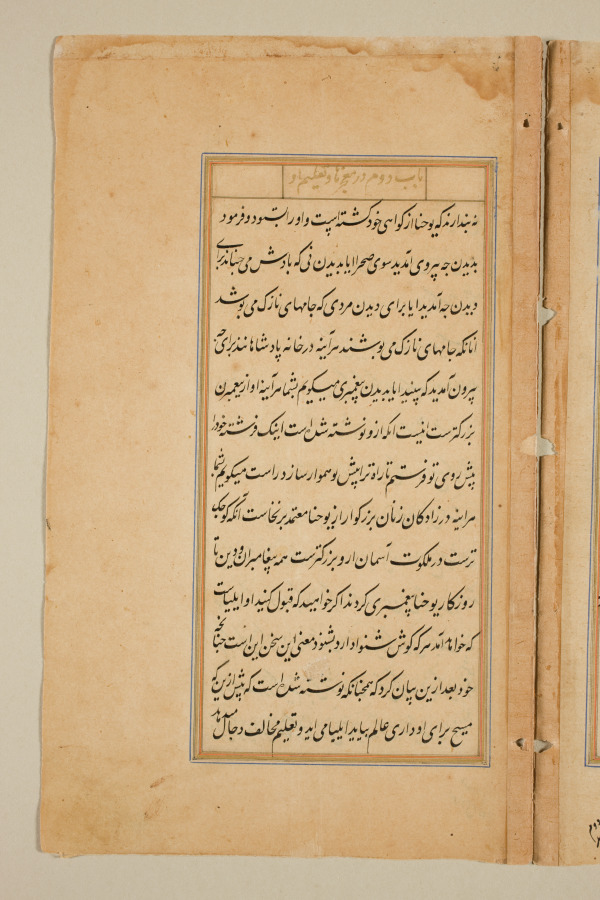 باب دوم در معجزها و تعلیم او
نه پندارند که یوحنا از کواهی خود کشته است و او را بستود و فرمود
بدیدن چه بیروی آمدید سوی صحرا ایا بدیدن نی که بادش می جنباند برای
دیدن چه آمدید ایا برای دیدن مردی که جامهای نازک می پوشد
آنانکه جامهای نازک می پوشند هرآینه در خانه پادشاهانند برای چه
بیرون آمدید که بینید ایا بدیدن پیغمبری میکویم بشما هرآینه او از پیغمبرن
بزرکترست اینست آنکه ازو نوشته شده است اینک فرشته خود را
پیش روی تو فرستم تا راه ترا پیش تو هموار سازد راست میکویم بشما
هراینه در زادکان زنان بزرکوارتر از یوحنا معتمد برنخاست آنکه کوچک
ترست در ملکوت آسمان ازو بزرکترست همه پیغامبران و دین تا
روزکار یوحنا پیغمبری کردند اکر خواهید که قبول کنید او ایلیاست
که خواهد آمد هرکه کوش شنوا دارد بشنود معنی این سخن این است چنانچه
خود بعد ازین بیان کرد که همچنانکه نوشته شده است که پیش ازین که
مسیح برای داوری عالم بیاید ایلیا می اید و تعلیم مخالف دجال میدهد